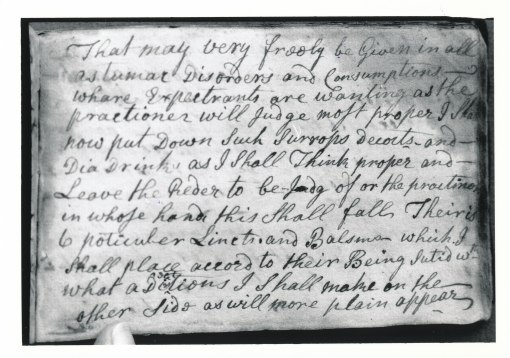 That may very freely be Given in all
astumac Disorders and Consumptions
whare Expectrants are wanting as the
practioner will Judge most proper I Shal
now put Down Such Surrops decocts and
Dia Drinks as I Shall Think proper and
Leave the Reder to be Judg of or the practiner
in whose hand this Shall fall Their is
6 poticuler Lincts and Balsms which I
Shall place accord to their Being Sutid wt
what adictions I Shall make on the
other Side as will more plain appear